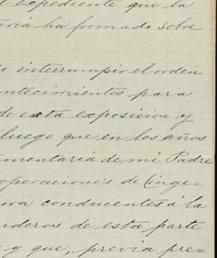 expediente que la
ha formado sobre
interrumpir el orden
ntecimientos para
de esta exposicion y
luego que en los años
mentaria de mi Padre
operaciones de Inge-
conducentes á la
nderos de esta parte
y que, previa pre-